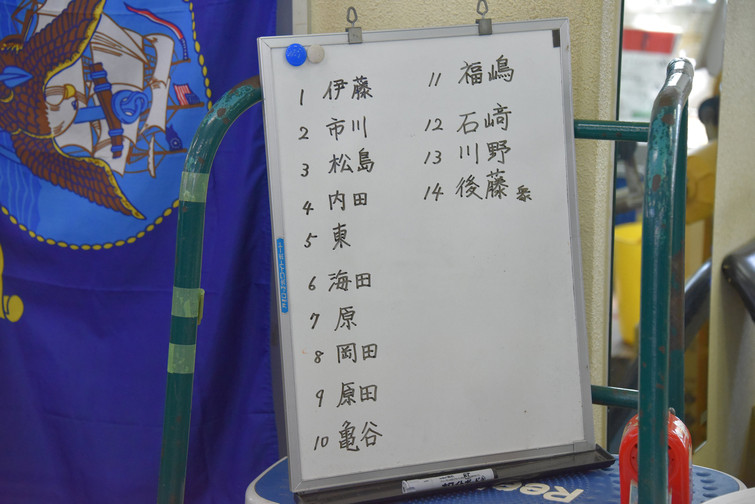 1 伊藤
2 市川
3 松島
4 内田
5 東
6 海田
7 原
8 岡田
9 原田
10 亀谷
11 福嶋
12 石﨑
13 川野
14 後藤